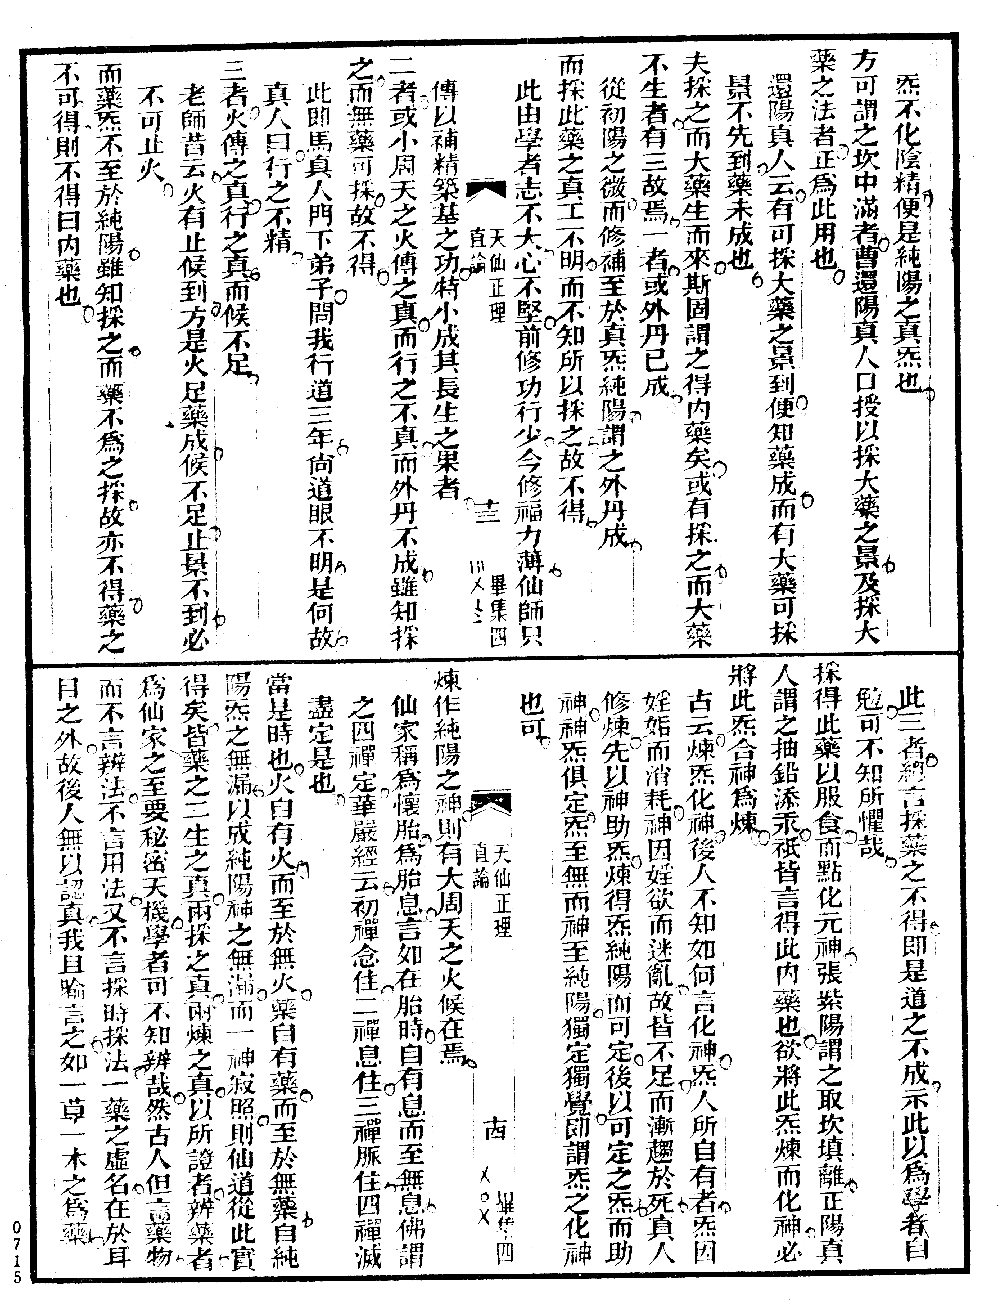 炁不化陰精便是純陽之真炁也
方可謂之坎中滿者曹還陽真人口授以採大藥之景及採大
藥之法者正為此用也
還陽真人云有可採大藥之景到便知藥成而有大藥可採
景不先到藥未成也
夫採之而大藥生而來斯固謂之得內藥矣或有採之而大藥
不生者有三故焉一者或外丹已成
從初陽之微而修補至於真炁純陽謂之外丹成
而採此藥之真工不明而不知所以採之故不得
此由學者志不大心不堅前修功行少今修福力薄仙師只
天仙正理
直論
十三
畢集四
傳以補精築基之功特小成其長生之果者
二者或小周天之火傳之真而行之不真而外丹不成雖知採
之而無藥可採故不得
此即馬真人門下弟子問我行道三年尚道眼不明是何故
真人曰行之不精
三者火傳之真行之真而候不足
老師昔云火有止候到方是火足藥成候不足止景不到必
不可止火
而藥炁不至於純陽雖知採之而藥不為之採故亦不得藥之
不可得則不得曰內藥也
此三者總言採藥之不得即是道之不成示此以為學者自
勉可不知所懼哉
採得此藥以服食而點化元神張紫陽謂之取坎填離正陽真
人謂之抽鉛添汞祇皆言得此內藥也欲將此炁煉而化神必
將此炁合神為煉
古云煉炁化神後人不知如何言化神炁人所自有者炁因
婬姤而消耗神因婬欲而迷亂故皆不足而漸趨於死真人
修煉先以神助炁煉得炁純陽而可定後以可定之炁而助
神神炁俱定炁至無而神至純陽獨定獨覺即謂炁之化神
也可
天仙正理
直論
十四
畢集四
煉作純陽之神則有大周天之火候在焉
仙家稱為懷胎為胎息言如在胎時自有息而至無息佛謂
之四禪定華嚴經云初禪念住二禪息住三禪脈住四禪滅
盡定是也
當是時也火自有火而至於無火藥自有藥而至於無藥自純
陽炁之無漏以成純陽神之無漏而一神寂照則仙道從此實
得矣皆藥之二生之真兩採之真兩煉之真以所證者辨藥者
為仙家之至要秘密天機學者可不知辨哉然古人但言藥物
而不言辨法不言用法又不言採時採法一藥之虛名在於耳
目之外故後人無以認真我且喻言之如一草一木之為藥
0715